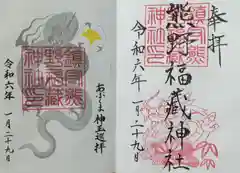 奉拝
熊野福藏神社
令和六年一月二十九日
あぶくま神玉巡拝
令和六年
一月二十九日